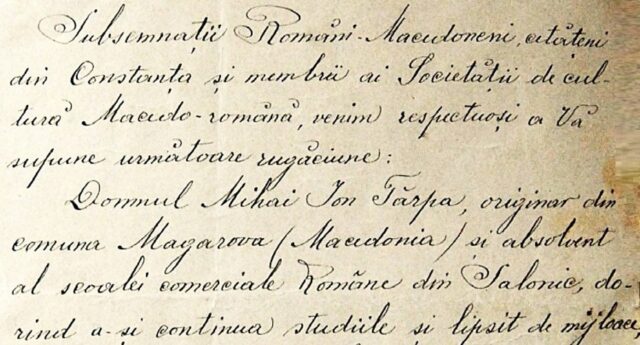 Subsemnații Români-Macedoneni, cetățeni
din Constanța și membrii ai Societății de cul-
tură Macedo-română, venim respectuoși a Vă
supune următoare rugăciune:
Domnul Mihai Ion Tărpa, originar din
comuna Magarova (Macedonia) și absolvent
al scoalei comerciale Române din Salonic, do-
rind a-și continua studiile și lipsit de mijloace,